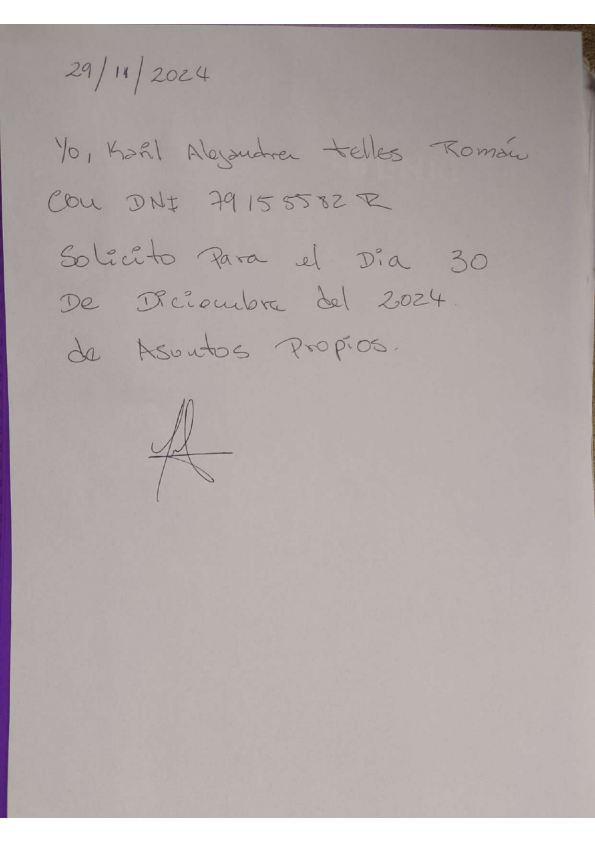 29/11/2024
Yo, Alejandra telles Román
Con DNI 79155582 R
Solicito Para el Dia 30
De Diciembre del 2024
de Asuntos Propios.